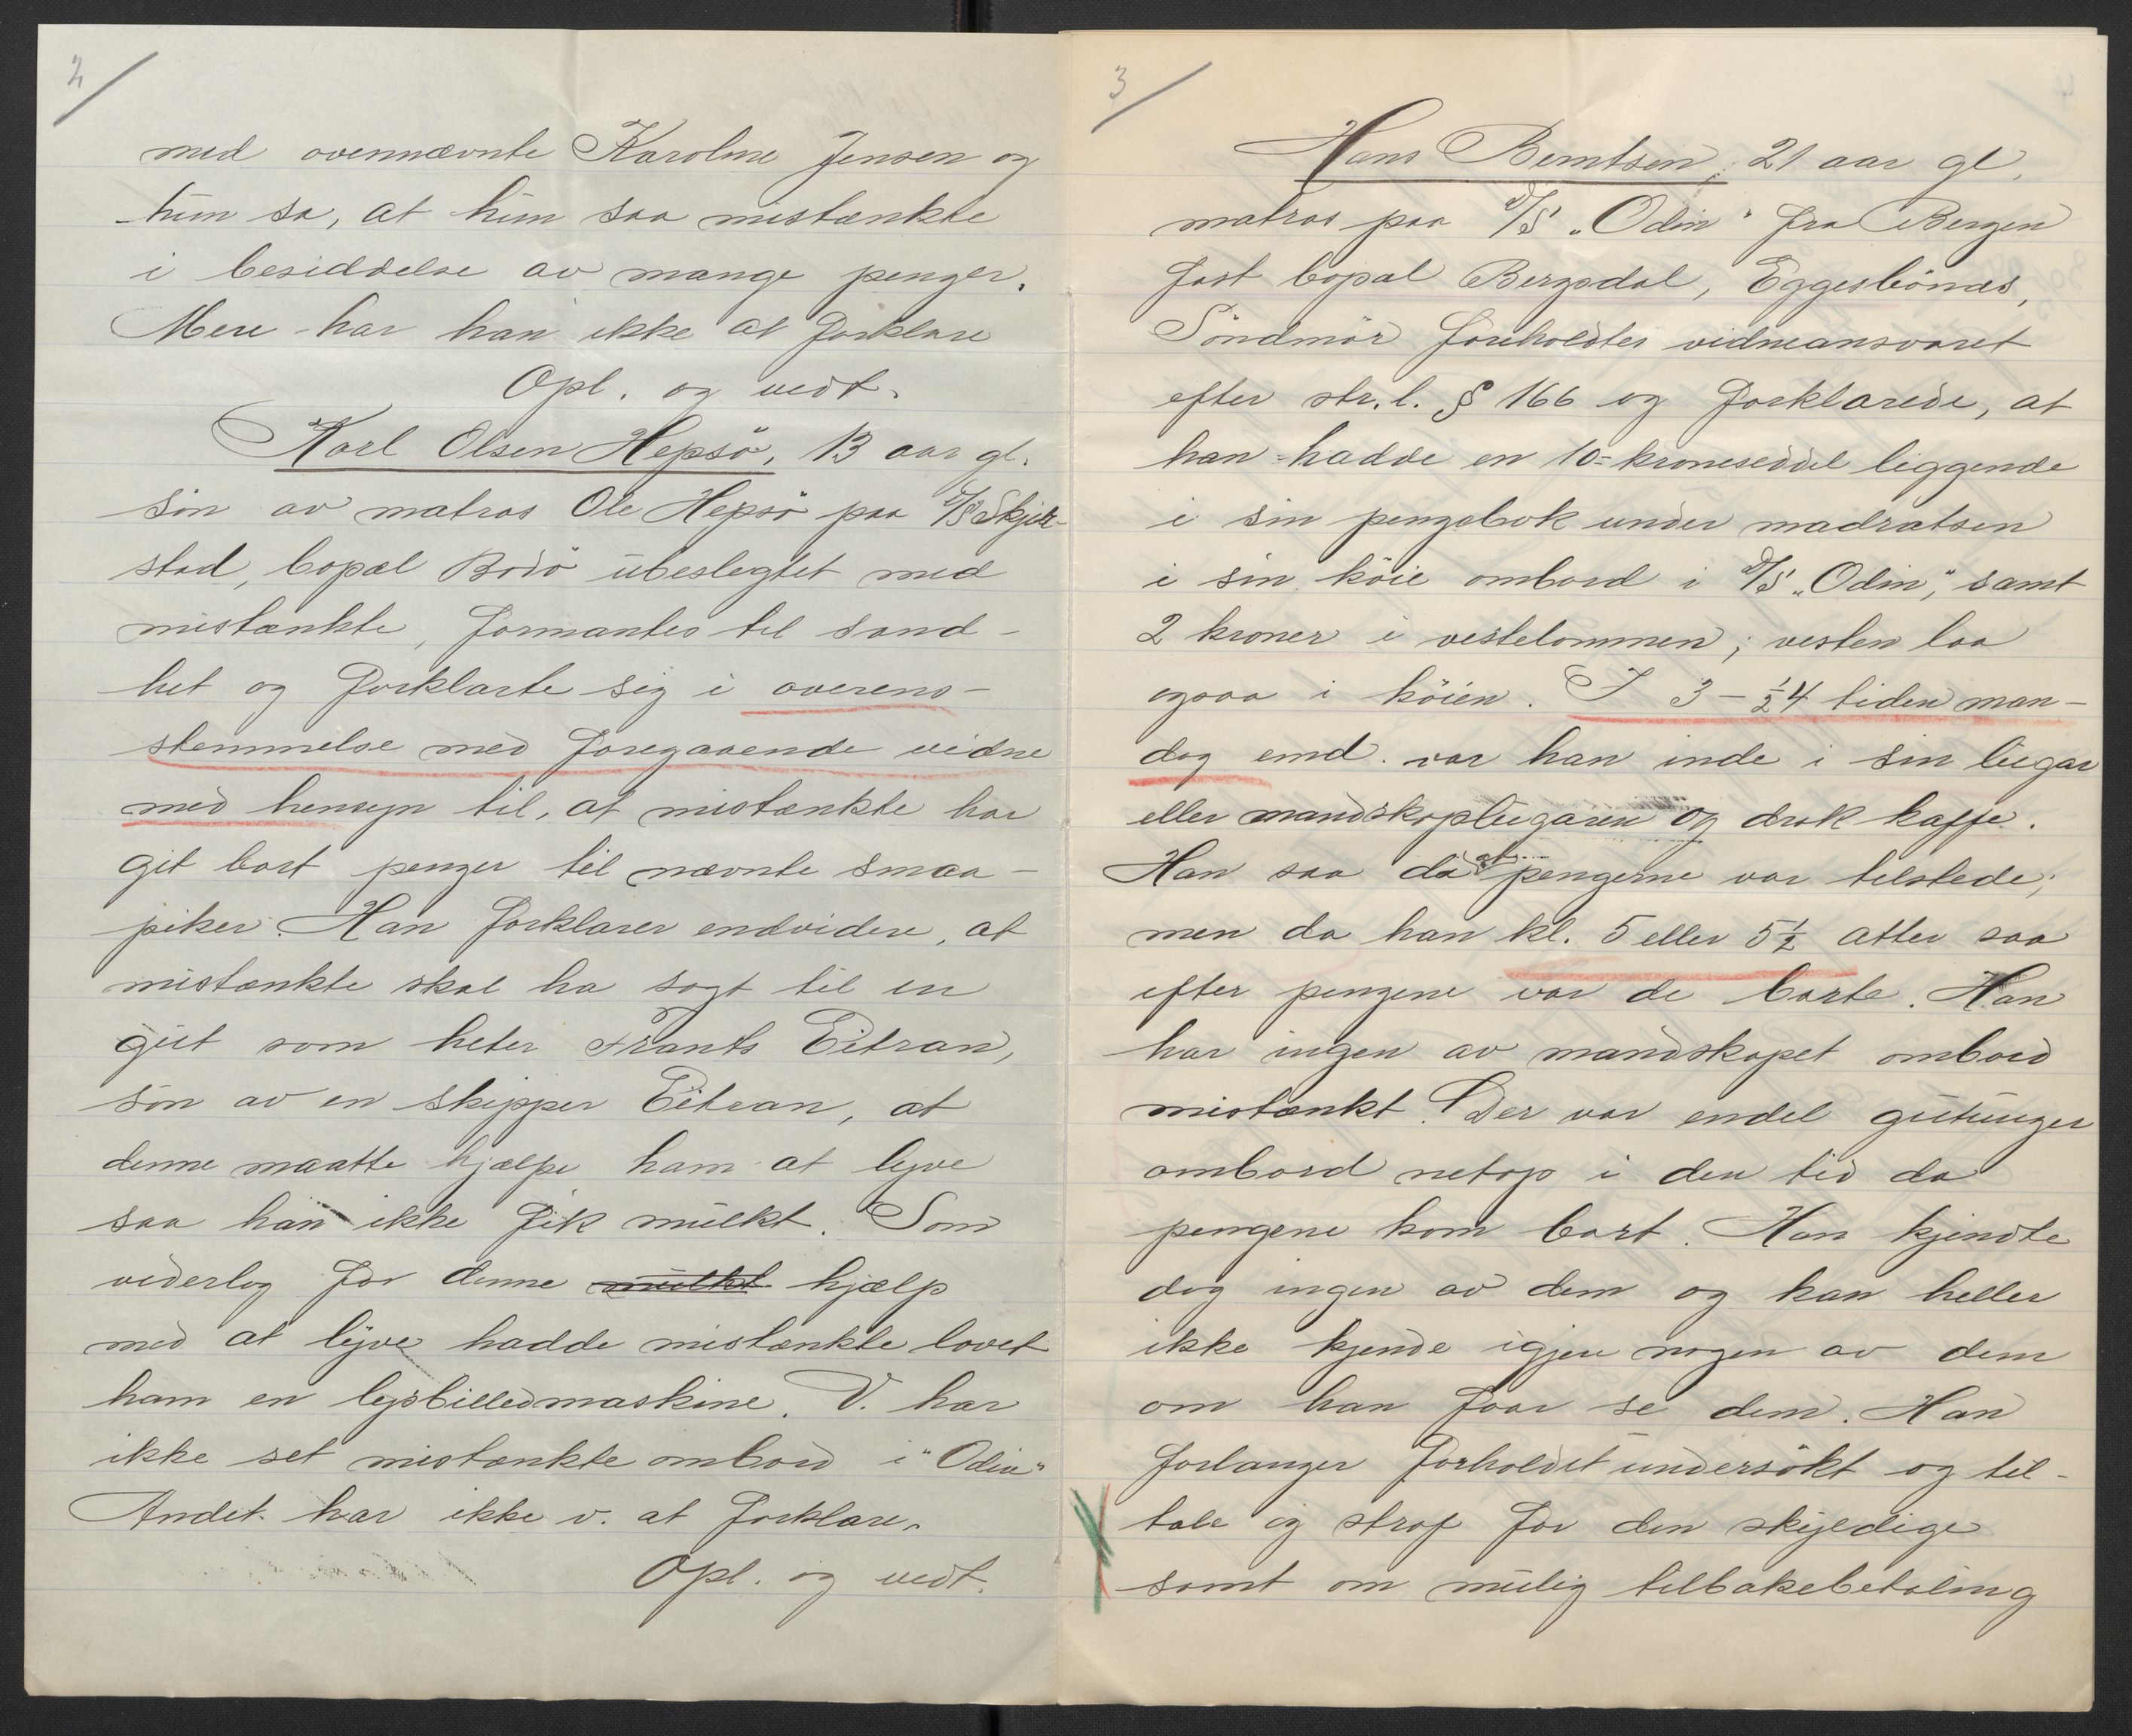 2
med ovennævnte Karoline Jensen og
hun sa, at hun saa mistænkte
i besiddelse av mange penger.
Mere har han ikke at forklare
Opl. og vedt.
Karl Olsen Hepsö, 13 aar gl.
sön av matros Ole Hepsö paa D/S Skjer-
stad, bopæl Bodö ubeslegtet med
mistænkte, formantes til sand-
het og forklarte sig i overens-
stemmelse med foregaaende vidne
med hensyn til, at mistænkte har
git bort penger til nævnte smaa-
piker. Han forklarer endvidere, at
mistænkte skal ha sagt til en
gut som heter Frants Eitran,
sön av en skipper Eitran, at
denne maatte hjælpe ham at lyve
saa han ikke fik mulkt. Som
vederlag for denne mulkt hjælp
med at lyve hadde mistænkte lovet
ham en lysbilledmaskine. V. har
ikke set mistænkte ombord i "Odin"
Andet har ikke v. at forklare.
Opl. og vedt.
3
Hans Berntsen, 21 aar gl,
matros paa D/S „Odin" fra Bergen
fast bopæl Bergsdal, Eggesbönes,
Söndmör foreholdtes vidneansvaret
efter str.l. § 166 og forklarede, at
han hadde en 10-kroneseddel liggende
i sin pengebok under madratsen
i sin köie ombord i D/S „Odin", samt
2 kroner i vestelommen; vesten laa
ogsaa i köien. I 3 - ½4 tiden man-
dag emd. var han inde i sin lugar
eller mandskapslugaren og drak kaffe.
Han saa da at pengerne var tilstede;
men da han kl. 5 eller 5½ atter saa
efter pengene var de borte. Han
har ingen av mandskapet ombord
mistænkt. Der var endel gutunger
ombord netop i den tid da
pengene kom bort. Han kjendte
dog ingen av dem og kan heller
ikke kjende igjen nogen av dem
om han faar se dem. Han
forlanger forholdet undersökt og til-
tale og straf for den skyldige
samt om mulig tilbakebetaling